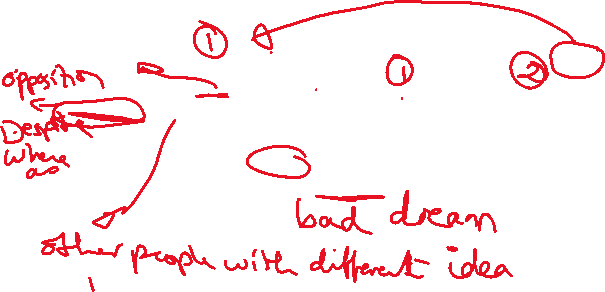 ① ① ②
opposition
Despite
where
as
bad dream
other people with different idea